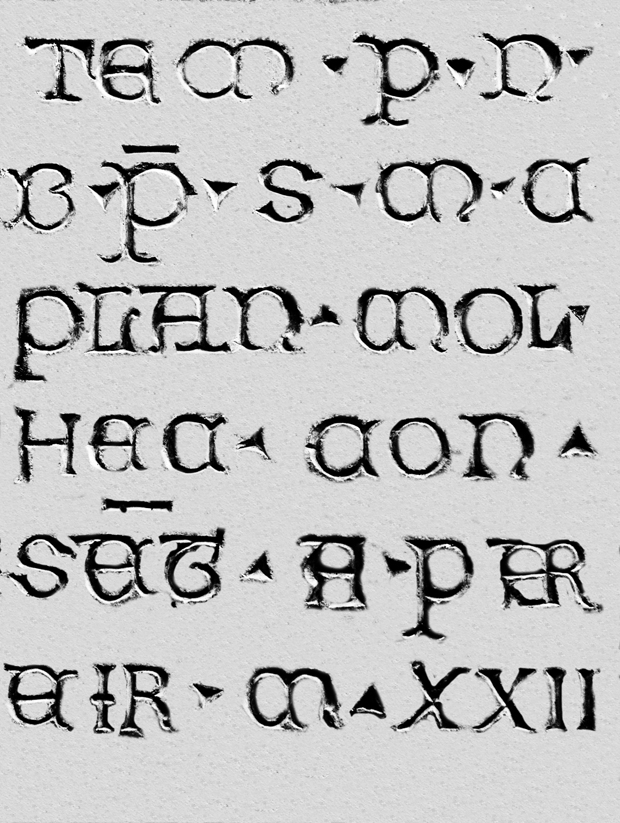 TEM · P · N ·
B · P̄ · S · M · C
PLAN · MOL ·
HEC · CON ·
SEC̄T · A · P ER
ECIR · M · XXII